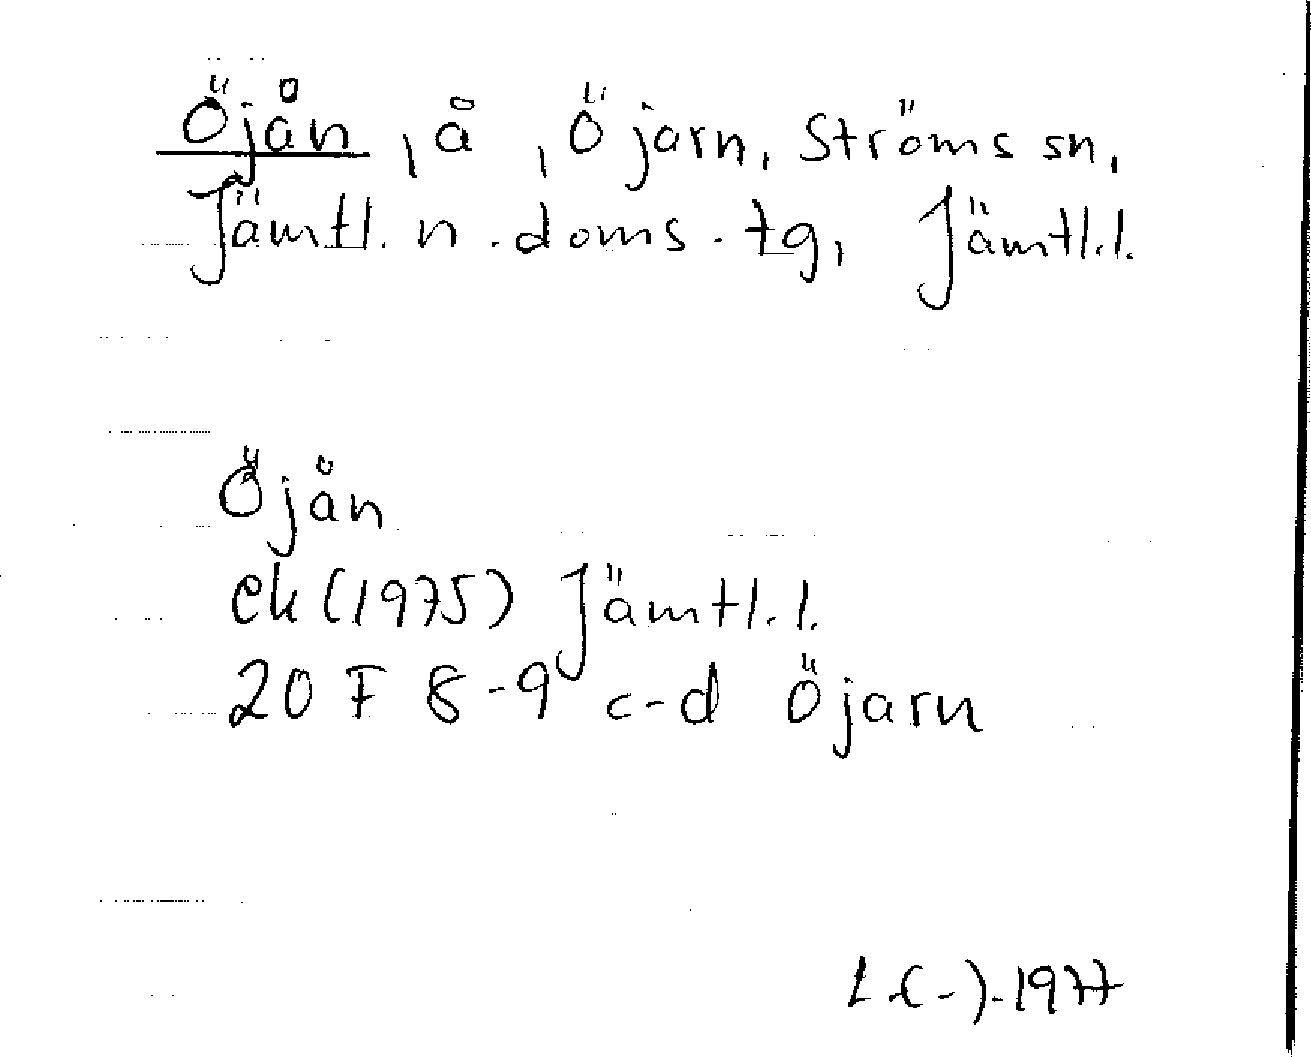 Öjån, å, Öjarn, Ströms sn,
Jämtl. n. doms. tg, Jämtl.l.
Öjån
ek (1975) Jämtl.l.
20 F 8-9 c-d Öjarn
L.(-).1977